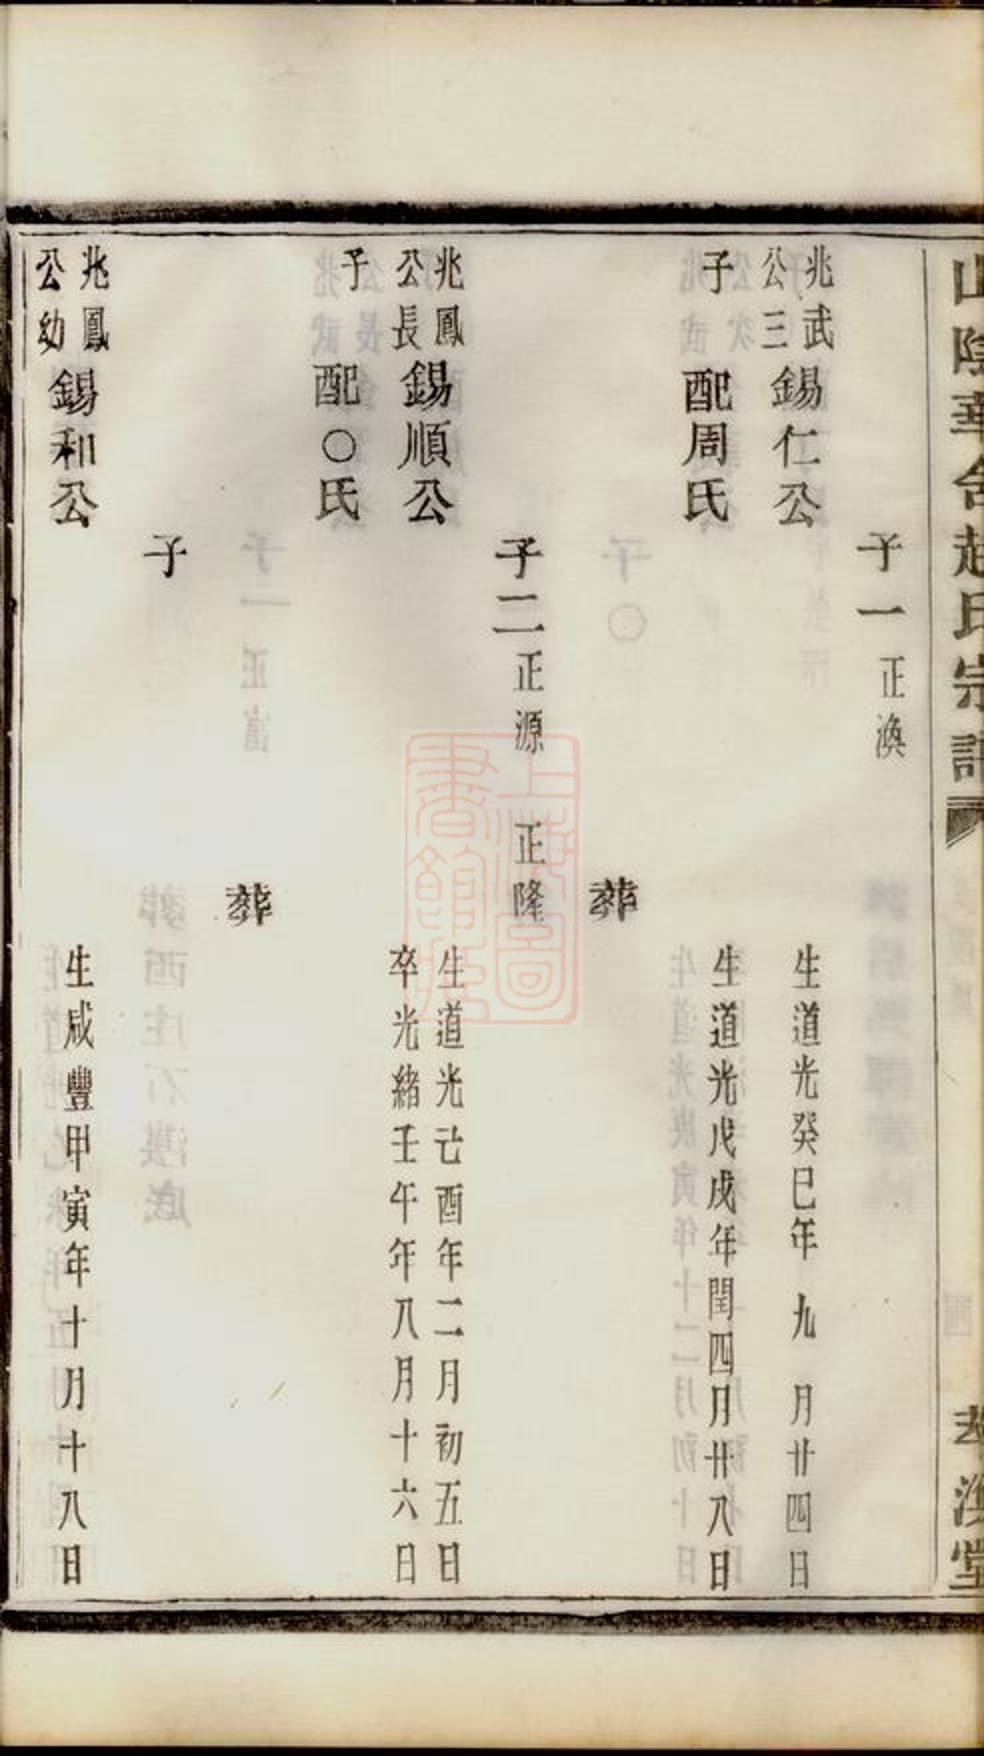 山陰華舍趙氏宗譜
萃渙堂
子一 正渙
兆武公三子 錫仁公 生道光癸巳年九月廿四日
配周氏 生道光戊戌年閏四月廿八日
葬
子二 正源 正隆
兆鳳公長子 錫順公 生道光己酉年二月初五日
卒光緒壬午年八月十六日
配〇氏
葬
子
兆鳳公幼 錫和公 生咸豐甲寅年十月十八日
上海圖書館藏